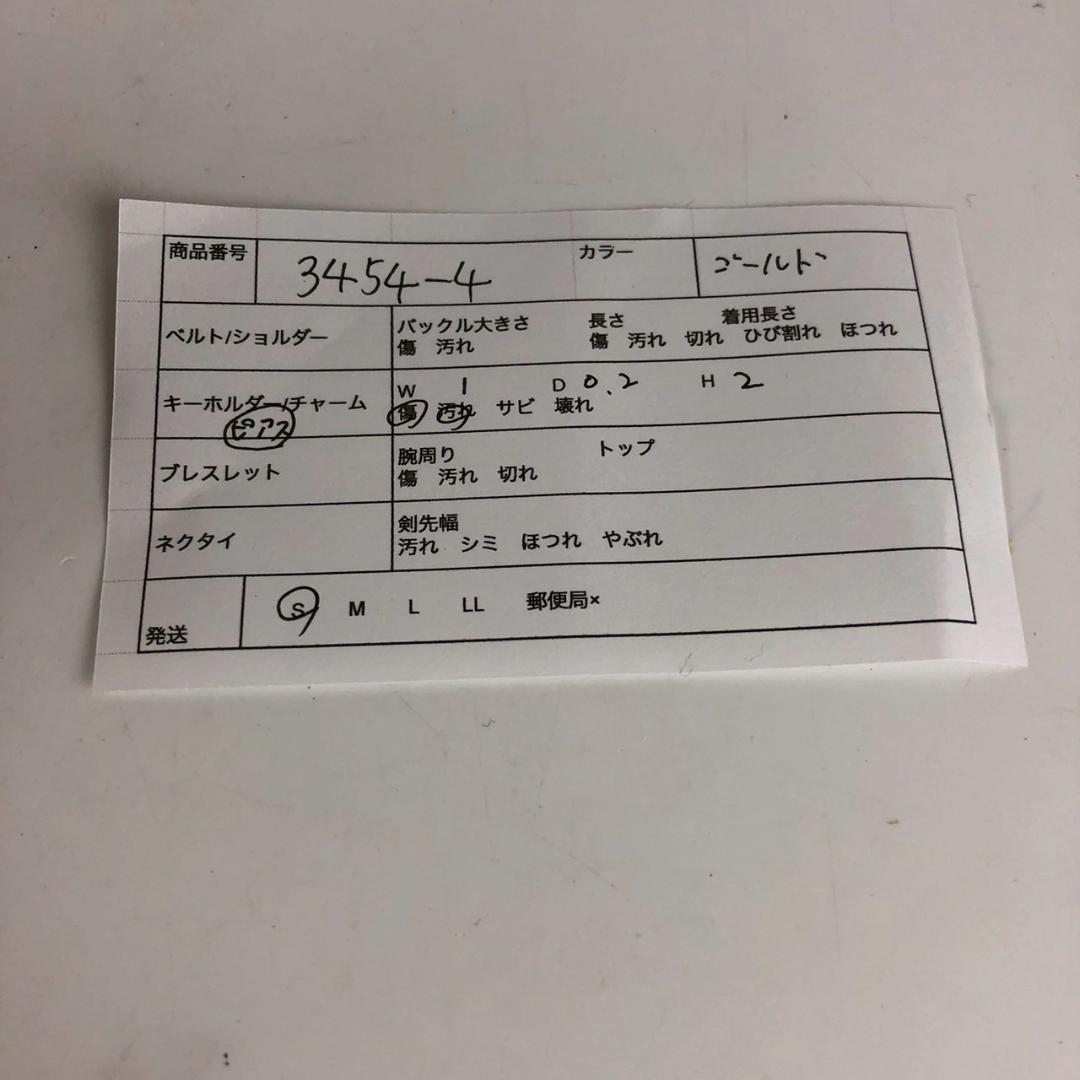 商品番号 3454-4 カラー ゴールド
ベルト/ショルダー バックル大きさ 長さ 着用長さ
傷 汚れ 傷 汚れ 切れ ひび割れ ほつれ
キーホルダー/チャーム W 1 D 0.2 H 2
ピアス 傷 汚れ サビ 壊れ
ブレスレット 腕周り トップ
傷 汚れ 切れ
ネクタイ 剣先幅
汚れ シミ ほつれ やぶれ
発送 S M L LL 郵便局×